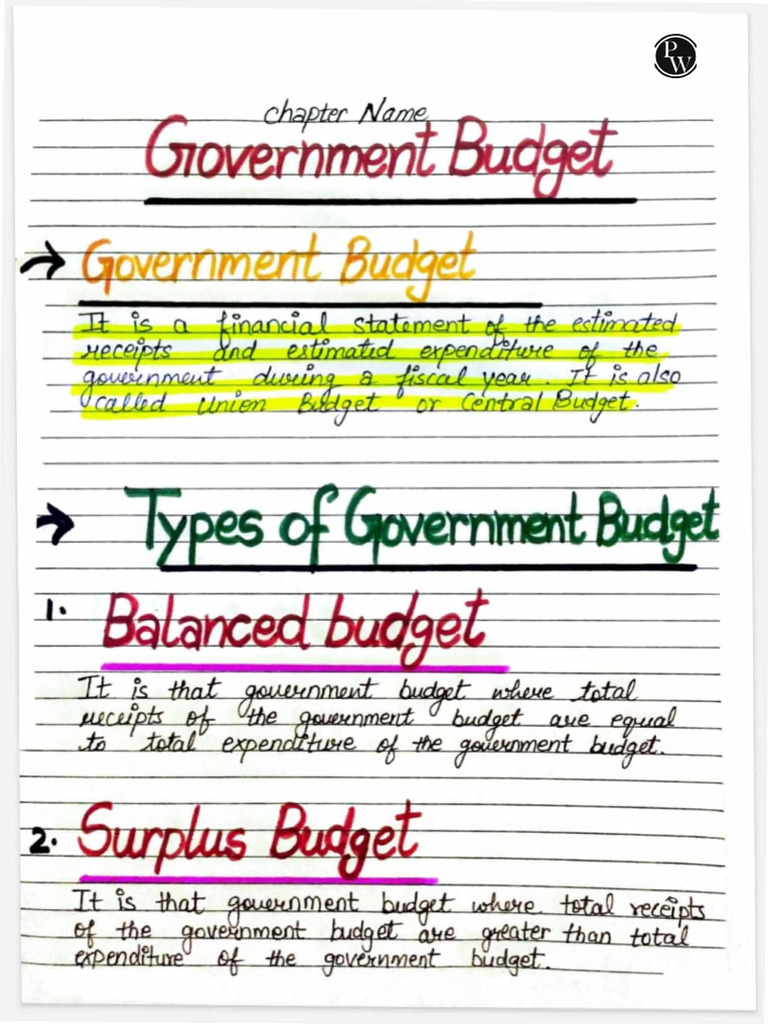 PW
chapter Name
Government Budget
→ Government Budget
It is a financial statement of the estimated
receipts and estimated expenditure of the
government during a fiscal year. It is also
called Union Budget or Central Budget.
→ Types of Government Budget
1. Balanced budget
It is that government budget where total
receipts of the government budget are equal
to total expenditure of the government budget.
2. Surplus Budget
It is that government budget where total receipts
of the government budget are greater than total
expenditure of the government budget.